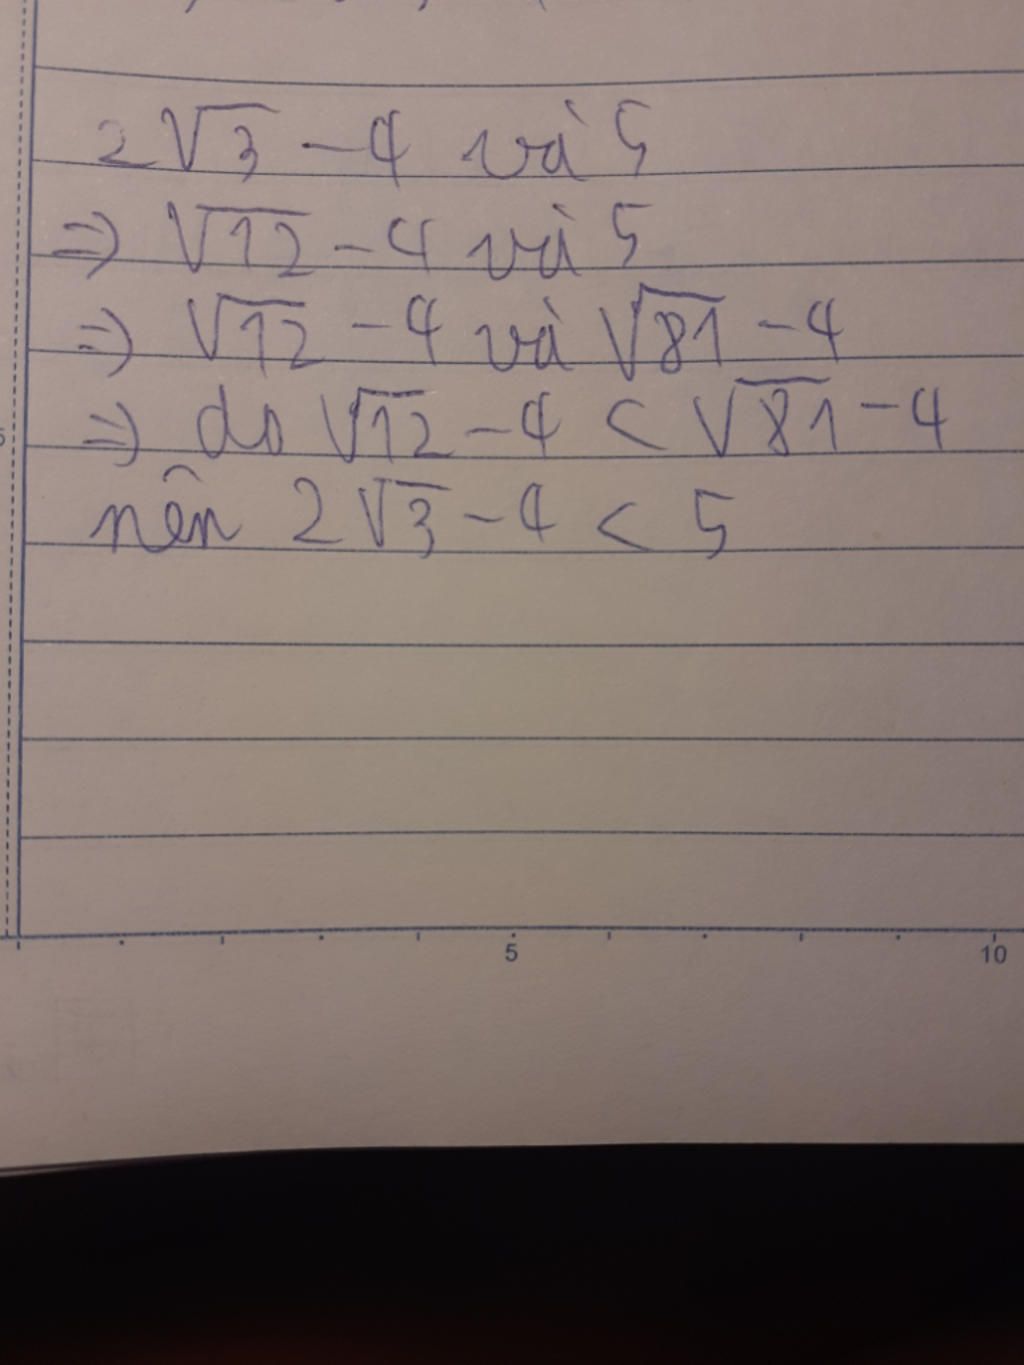 2√3 - 4 và 5
=> √12 - 4 và 5
=> √12 - 4 và √81 - 4
=> do √12 - 4 < √81 - 4
nên 2√3 - 4 < 5
5 10